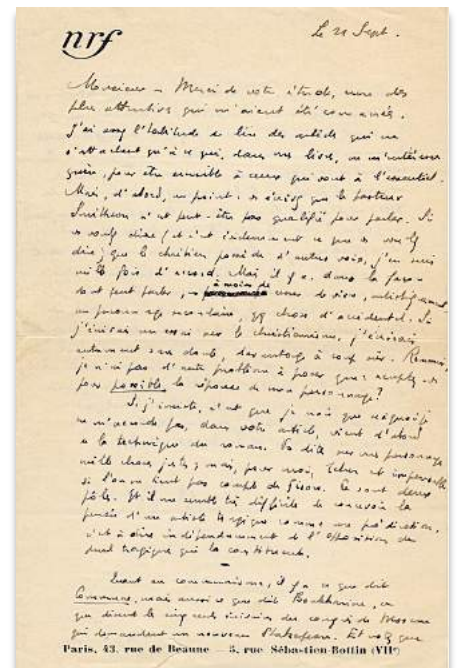 nrf
Le 21 Sept.
Monsieur – Merci de votre étude, une des
plus attentives qui m'aient été consacrées.
J'ai assez l'habitude de lire des articles qui ne
s'attachent qu'à ce qui, dans mes livres, ne m'intéresse
guère, pour être sensible à ceux qui vont à l'essentiel.
Mais, d'abord, un point : vous écrivez que le pasteur
Smithson n'est peut-être pas qualifié pour parler. Si
vous voulez dire (et c'est évidemment ce que vous voulez
dire) que le chrétien possède d'autres voix, j'en suis
mille fois d'accord. Mais il y a, dans la façon
dont peut parler, à moins de
un personnage secondaire, qq chose d'accidentel. Si
j'écrivais un essai sur le christianisme, j'écrirais
autrement sans doute, davantage à coup sûr. Romancier,
je n'ai pas d'autre problème à poser que : acceptez-vous
pour possible la réponse de mon personnage ?
Si j'insiste, c'est que je vois que ce
ne s'accorde pas, dans votre article, vient d'abord
de la technique du roman. Vous dites sur mes personnages
mille choses justes ; mais, pour moi, Tchen est
si l'on ne tient pas compte de Gisors. Ce sont deux
pôles. Et il me semble très difficile de concevoir la
pensée d'un artiste tragique comme une prédication,
c'est-à-dire indépendamment de l'opposition des
tragique qui la constituent.
Quant au communisme, il y a ce que dit
Commune, mais aussi ce que dit Boukharine, ce
que disent les cinquante du congrès de Moscou
qui demandent un nouveau Shakespeare. Et voilà que
Paris, 43, rue de Beaune – 5, rue Sébastien-Bottin (VIIe)